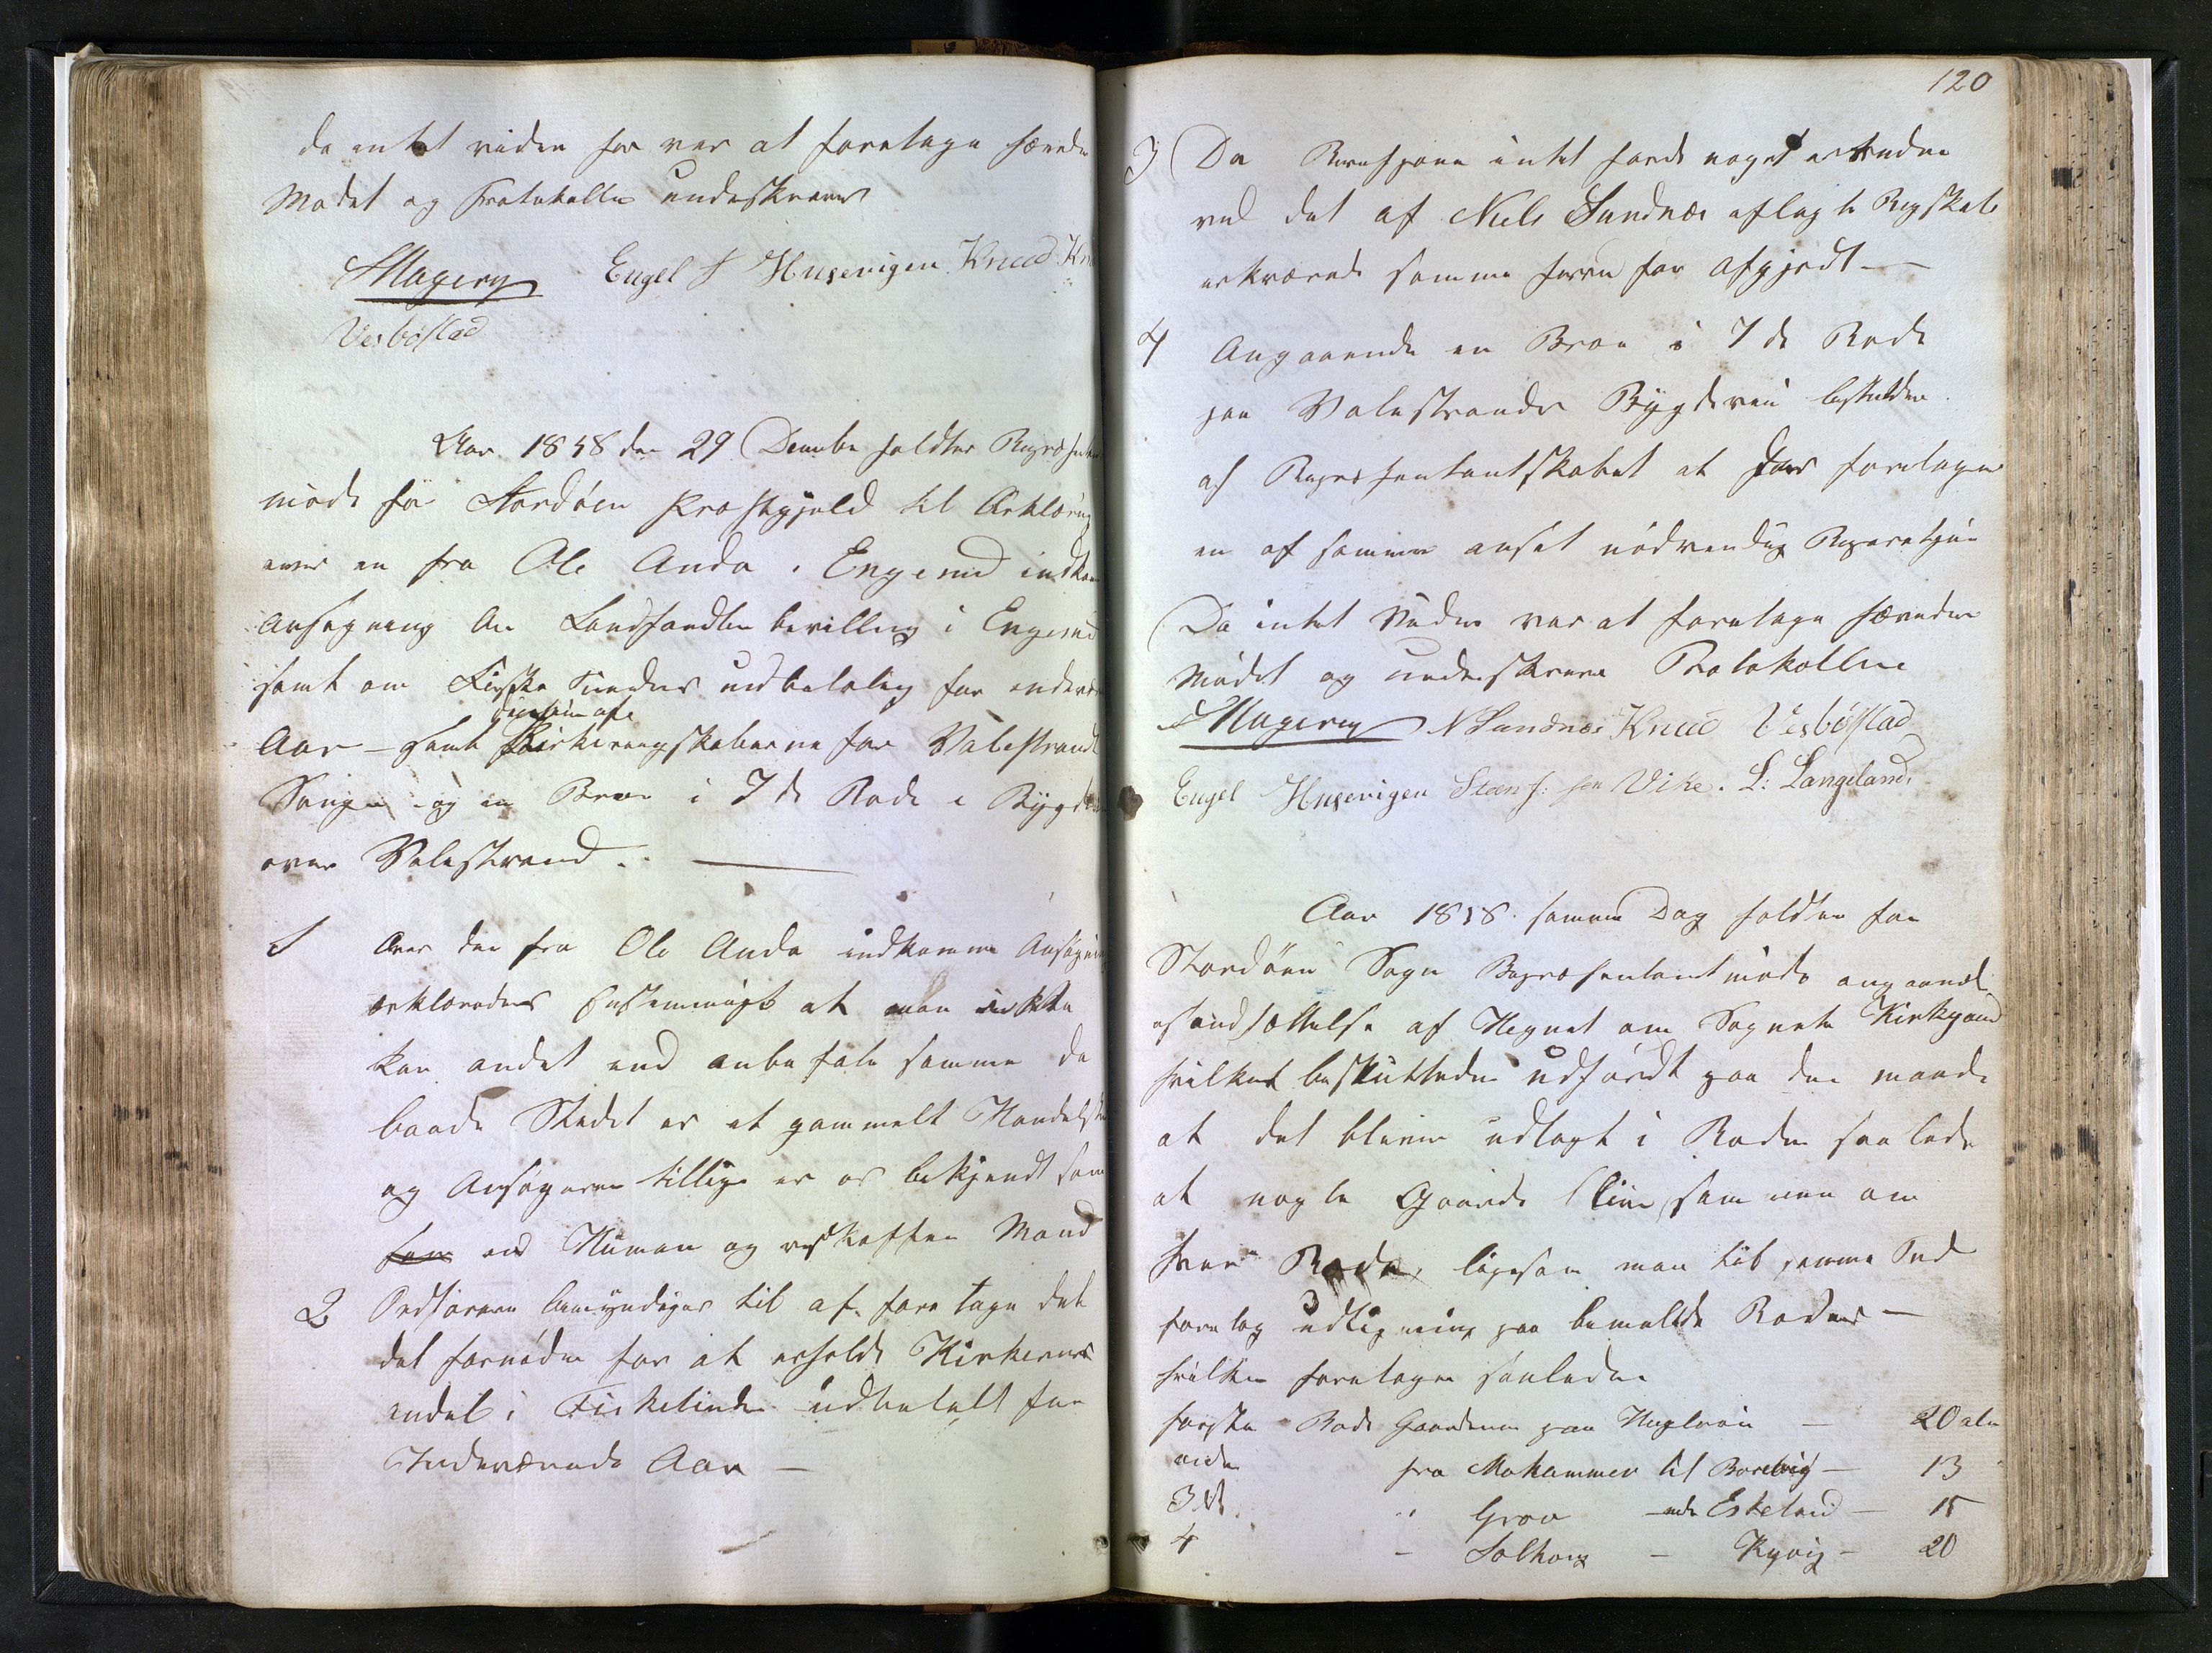 da intet viden for var at foretage hævedes
Mødet og Protokollen undeskreves
SMageroy Engel J Huqevigen Knud
Vesbøstad
Aar 1858 den 29 Decembe holdtes Repræsentant
møde for Stordøen Præstegjeld til Erklæring
over en fra Ole Anda i Engesund indkom
Ansøgning om Landhandler bevilling i Engesund
samt om Fiske tiendes udbetaling for inderv
Revision af
Aar – samt Kirkerengskaberne for Valestrand
Sogn – og en Broe i 7de Rode i Bygdevei
over Valestrand. —
1 Over den fra Ole Anda indkomne Ansøgning
erklæredes Enstemmigt at man ikke
kan andet end anbefale samme da
baade Stedet er et gammelt Handelsste
og Ansøgeren tillige er os bekjendt som
som end Human og retskaffen Mand
2 Ordføreren bemyndiges til at fore tage det
det fornødne for at erholde Kirkernes
andel i Fisketienden udbetalt for
Inderværende Aar —
120
3 Da intet havde noget at erindre
ved det af Niels Sandnæs aflagte Regskab
erkværede samme herved for afgjordt —
4 Angaaende en Broe i 7de Rode
paa Valestrands Bygdevei besluttedes
af Repræsentantskabet at foretages
en af samme anset nødvendig Reparation
Da intet Viden var at foretage hævedes
Mødet og undeskreve Protokollen
SMageroy N Sandnæs Knud Vesbøstad
Engel Huqevigen Steen J: søn Vike. L: Langeland,
Aar 1858. samme Dag holdtes for
Stordøen Sogn Repræsentantmøde angaaende
istandsættelse af Hegnet om Sognets Kirkgaard
hvilket besluttedes udført paa den maade
at det bliver udlagt i Roder saa lede
at nogle Gaarde blive sammen om
hver Rode, ligesom man til samme Tid
foretog udligning paa bemeldte Roder —
hvilken foretages saaledes
første Rode Gaardene paa Hugløen — 20 alen
anden fra Mehammer til Borevig — 13
3de " Grov — Eskeland — 15
4 – Solhoug – Kyvig – 20